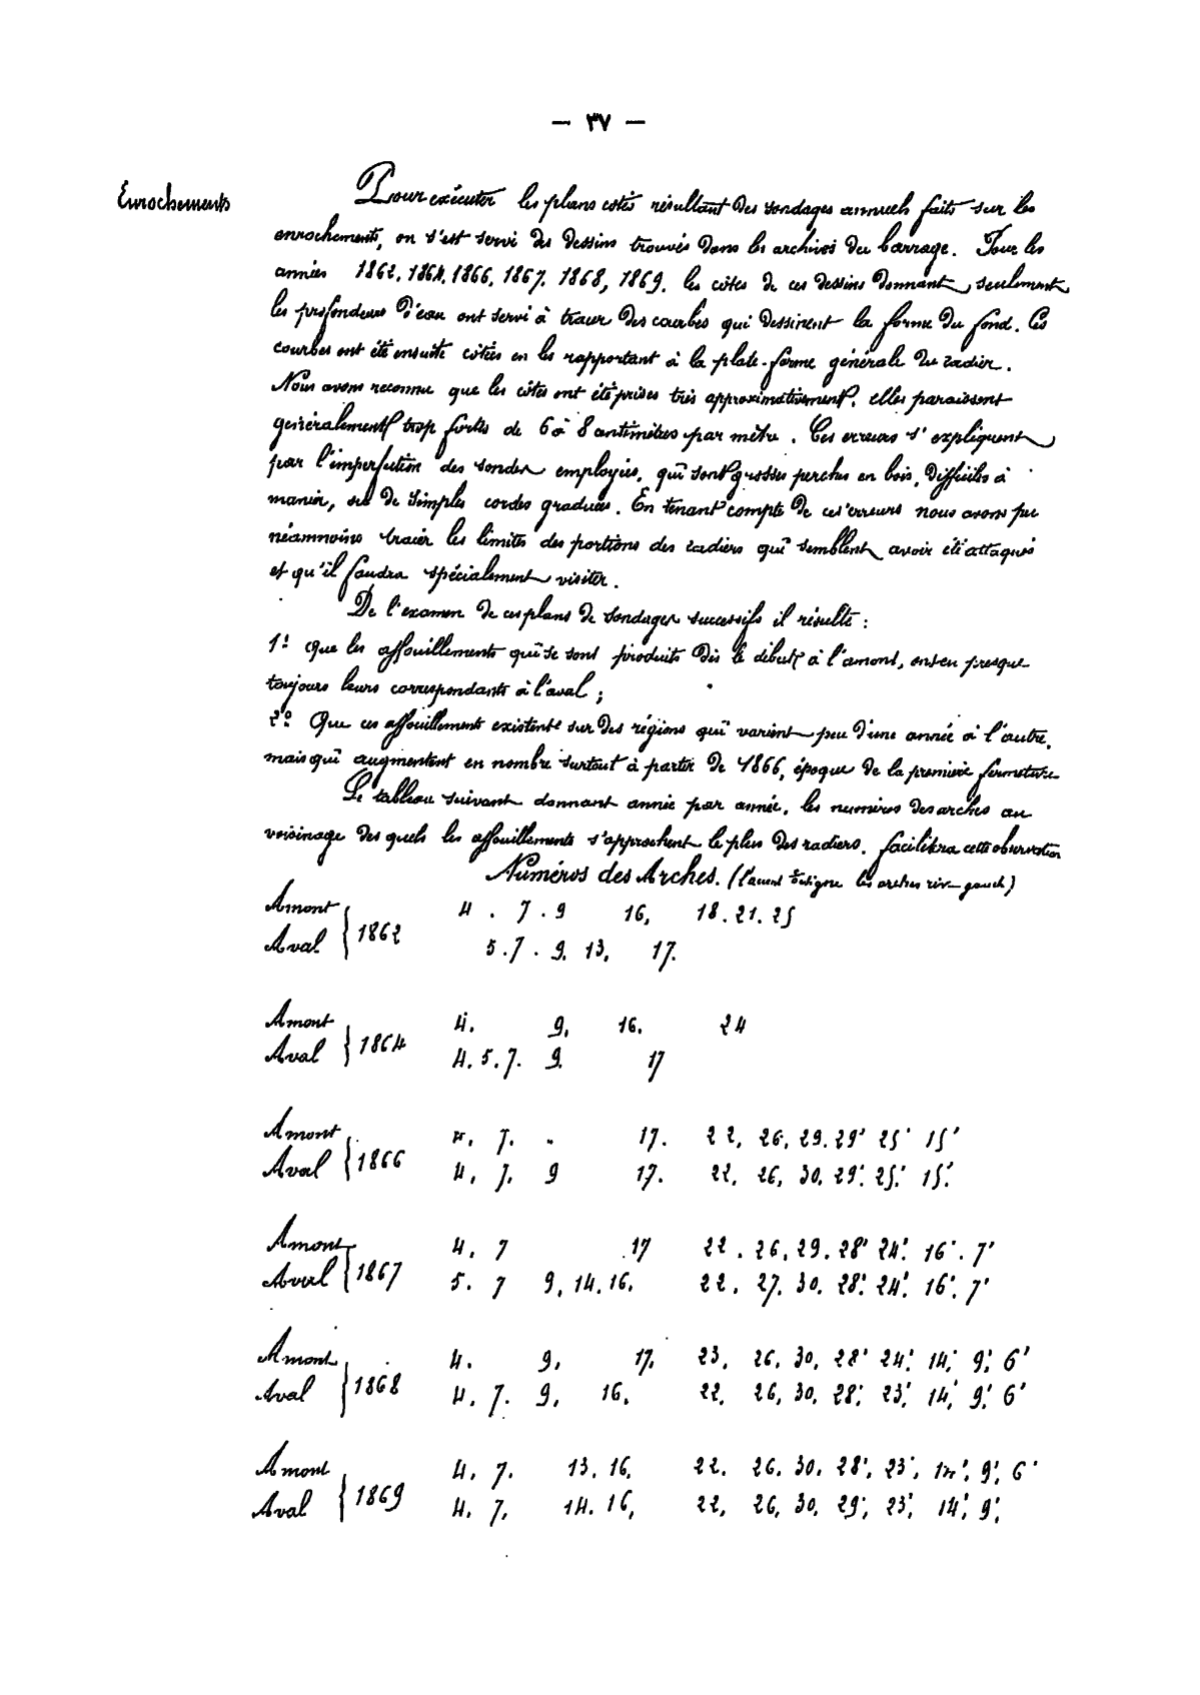 — ٣٧ —
Enrochements
Pour exécuter les plans cotés résultant des sondages annuels faits sur les
enrochements, on s'est servi des dessins trouvés dans les archives du barrage. Pour les
années 1862, 1864, 1866, 1867, 1868, 1869. les côtes de ces dessins donnant seulement
les profondeurs d'eau ont servi à tracer des courbes qui dessinent la forme du fond. Ces
courbes ont été ensuite côtées en les rapportant à la plate-forme générale du radier.
Nous avons reconnu que les côtes ont été prises très approximativement, elles paraissent
généralement trop fortes de 6 à 8 centimètres par mètre. Ces erreurs s'expliquent
par l'imperfection des sondes employées, qui sont grosses perches en bois, difficiles à
manier, ou de simples cordes graduées. En tenant compte de ces erreurs nous avons pu
néammoins tracer les limites des portions des radiers qui semblent avoir été attaqués
et qu'il faudra spécialement visiter.
De l'examen de ces plans de sondages successifs il résulte :
1º Que les affouillements qui se sont produits dès le début à l'amont, ont en presque
toujours leurs correspondants à l'aval ;
2º Que ces affouillements existent sur des régions qui varient peu d'une année à l'autre,
mais qui augmentent en nombre surtout à partir de 1866, époque de la première fermeture
Le tableau suivant donnant année par année, les numéros des arches au
voisinage des quels les affouillements s'approchent le plus des radiers, facilitera cette observation
Numéros des Arches. (l'accent désigne les arches rive gauche)
Amont } 1862 4 . 7 . 9 16, 18 . 21 . 25
Aval 5 . 7 . 9. 13, 17.
Amont } 1864 4. 9, 16. 24
Aval 4. 5. 7. 9. 17
Amont } 1866 4, 7. . 17. 22, 26, 29. 29' 25' 15'
Aval 4, 7, 9 17. 22, 26, 30, 29'. 25'. 15'.
Amont } 1867 4. 7 17 22 . 26, 29. 28' 24'. 16'. 7'
Aval 5. 7 9, 14. 16. 22. 27. 30. 28'. 24'. 16'. 7'
Amont } 1868 4. 9, 17, 23, 26, 30, 28' 24'. 14', 9'. 6'
Aval 4. 7. 9, 16, 22, 26, 30, 28', 23', 14', 9'. 6'
Amont } 1869 4, 7. 13. 16, 22. 26. 30. 28', 23', 14', 9', 6'
Aval 4. 7, 14. 16, 22, 26, 30, 29', 23', 14', 9',